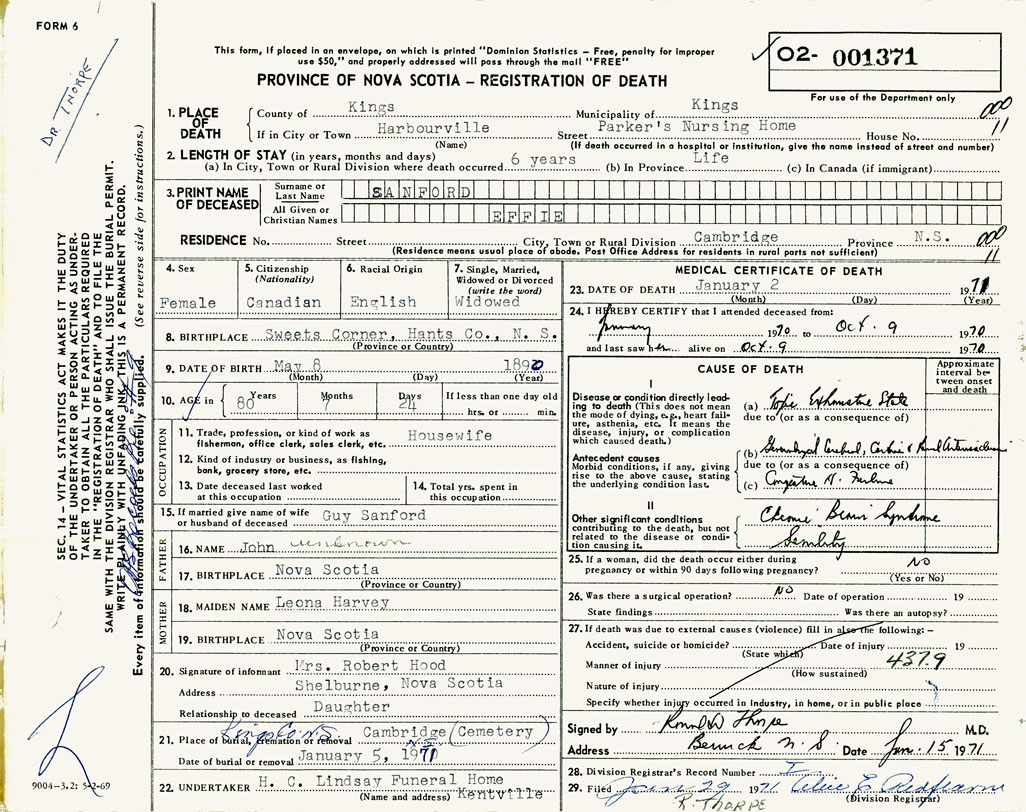 FORM 6
DR. THORPE
This form, if placed in an envelope, on which is printed "Dominion Statistics – Free, penalty for improper
use $50," and properly addressed will pass through the mail "FREE"
PROVINCE OF NOVA SCOTIA – REGISTRATION OF DEATH
02- 001371
For use of the Department only
SEC. 14 – VITAL STATISTICS ACT MAKES IT THE DUTY
OF THE UNDERTAKER OR PERSON ACTING AS UNDER-
TAKER TO OBTAIN ALL THE PARTICULARS REQUIRED
IN THE "REGISTRATION OF DEATH" AND TO FILE THE
SAME WITH THE DIVISION REGISTRAR WHO SHALL ISSUE THE BURIAL PERMIT.
WRITE PLAINLY WITH UNFADING INK. THIS IS A PERMANENT RECORD.
Every item of information should be carefully supplied. (See reverse side for instructions.)
1. PLACE OF DEATH
County of Kings Municipality of Kings 000
If in City or Town Harbourville Street Parker's Nursing Home House No. 11
(Name) (If death occurred in a hospital or institution, give the name instead of street and number)
2. LENGTH OF STAY (in years, months and days)
(a) In City, Town or Rural Division where death occurred 6 years (b) In Province Life (c) In Canada (if immigrant)
3. PRINT NAME OF DECEASED
Surname or Last Name SANFORD
All Given or Christian Names EFFIE
RESIDENCE No. Street City, Town or Rural Division Cambridge Province N.S. 000
(Residence means usual place of abode. Post Office Address for residents in rural parts not sufficient) 11
4. Sex
Female
5. Citizenship
(Nationality)
Canadian
6. Racial Origin
English
7. Single, Married,
Widowed or Divorced
(write the word)
Widowed
8. BIRTHPLACE Sweets Corner, Hants Co., N. S.
(Province or Country)
9. DATE OF BIRTH May 8 1890
(Month) (Day) (Year)
10. AGE in
Years Months Days If less than one day old
80 7 24 hrs. or min.
OCCUPATION
11. Trade, profession, or kind of work as
fishermen, office clerk, sales clerk, etc. Housewife
12. Kind of industry or business, as fishing,
bank, grocery store, etc.
13. Date deceased last worked
at this occupation
14. Total yrs. spent in
this occupation
15. If married give name of wife
or husband of deceased Guy Sanford
FATHER
16. NAME John unknown
17. BIRTHPLACE Nova Scotia
(Province or Country)
MOTHER
18. MAIDEN NAME Leona Harvey
19. BIRTHPLACE Nova Scotia
(Province or Country)
20. Signature of informant Mrs. Robert Hood
Address Shelburne, Nova Scotia
Relationship to deceased Daughter
Kings Co. N.S.
21. Place of burial, cremation or removal Cambridge (Cemetery)
N.S.
Date of burial or removal January 5, 1971
22. UNDERTAKER H. C. Lindsay Funeral Home
(Name and address) Kentville
9004-3.2: 5-2-69
MEDICAL CERTIFICATE OF DEATH
23. DATE OF DEATH January 2 1971
(Month) (Day) (Year)
24. I HEREBY CERTIFY that I attended deceased from:
January 1970 to Oct. 9 1970
and last saw her alive on Oct. 9 1970
CAUSE OF DEATH
Approximate
interval be-
tween onset
and death
I
Disease or condition directly lead-
ing to death (This does not mean
the mode of dying, e.g., heart fail-
ure, asthenia, etc. It means the
disease, injury, or complication
which caused death.)
(a) Toxic Exhaustive State
due to (or as a consequence of)
Antecedent causes
Morbid conditions, if any, giving
rise to the above cause, stating
the underlying condition last.
(b) Generalized Cerebral, Cardiac & Renal Arteriosclerosis
due to (or as a consequence of)
(c) Congestive H. Failure
II
Other significant conditions
contributing to the death, but not
related to the disease or condi-
tion causing it.
Chronic Brain Syndrome
Senility
25. If a woman, did the death occur either during
pregnancy or within 90 days following pregnancy? NO
(Yes or No)
26. Was there a surgical operation? NO Date of operation 19
State findings Was there an autopsy?
27. If death was due to external causes (violence) fill in also the following: –
Accident, suicide or homicide? Date of injury 19
(State which)
Manner of injury 437.9
(How sustained)
Nature of injury
Specify whether injury occurred in industry, in home, or in public place
Signed by Ronald W Thorpe M.D.
Address Berwick N.S Date Jan. 15 1971
28. Division Registrar's Record Number I
29. Filed Jan 29 1971
(Division Registrar)
R. THORPE